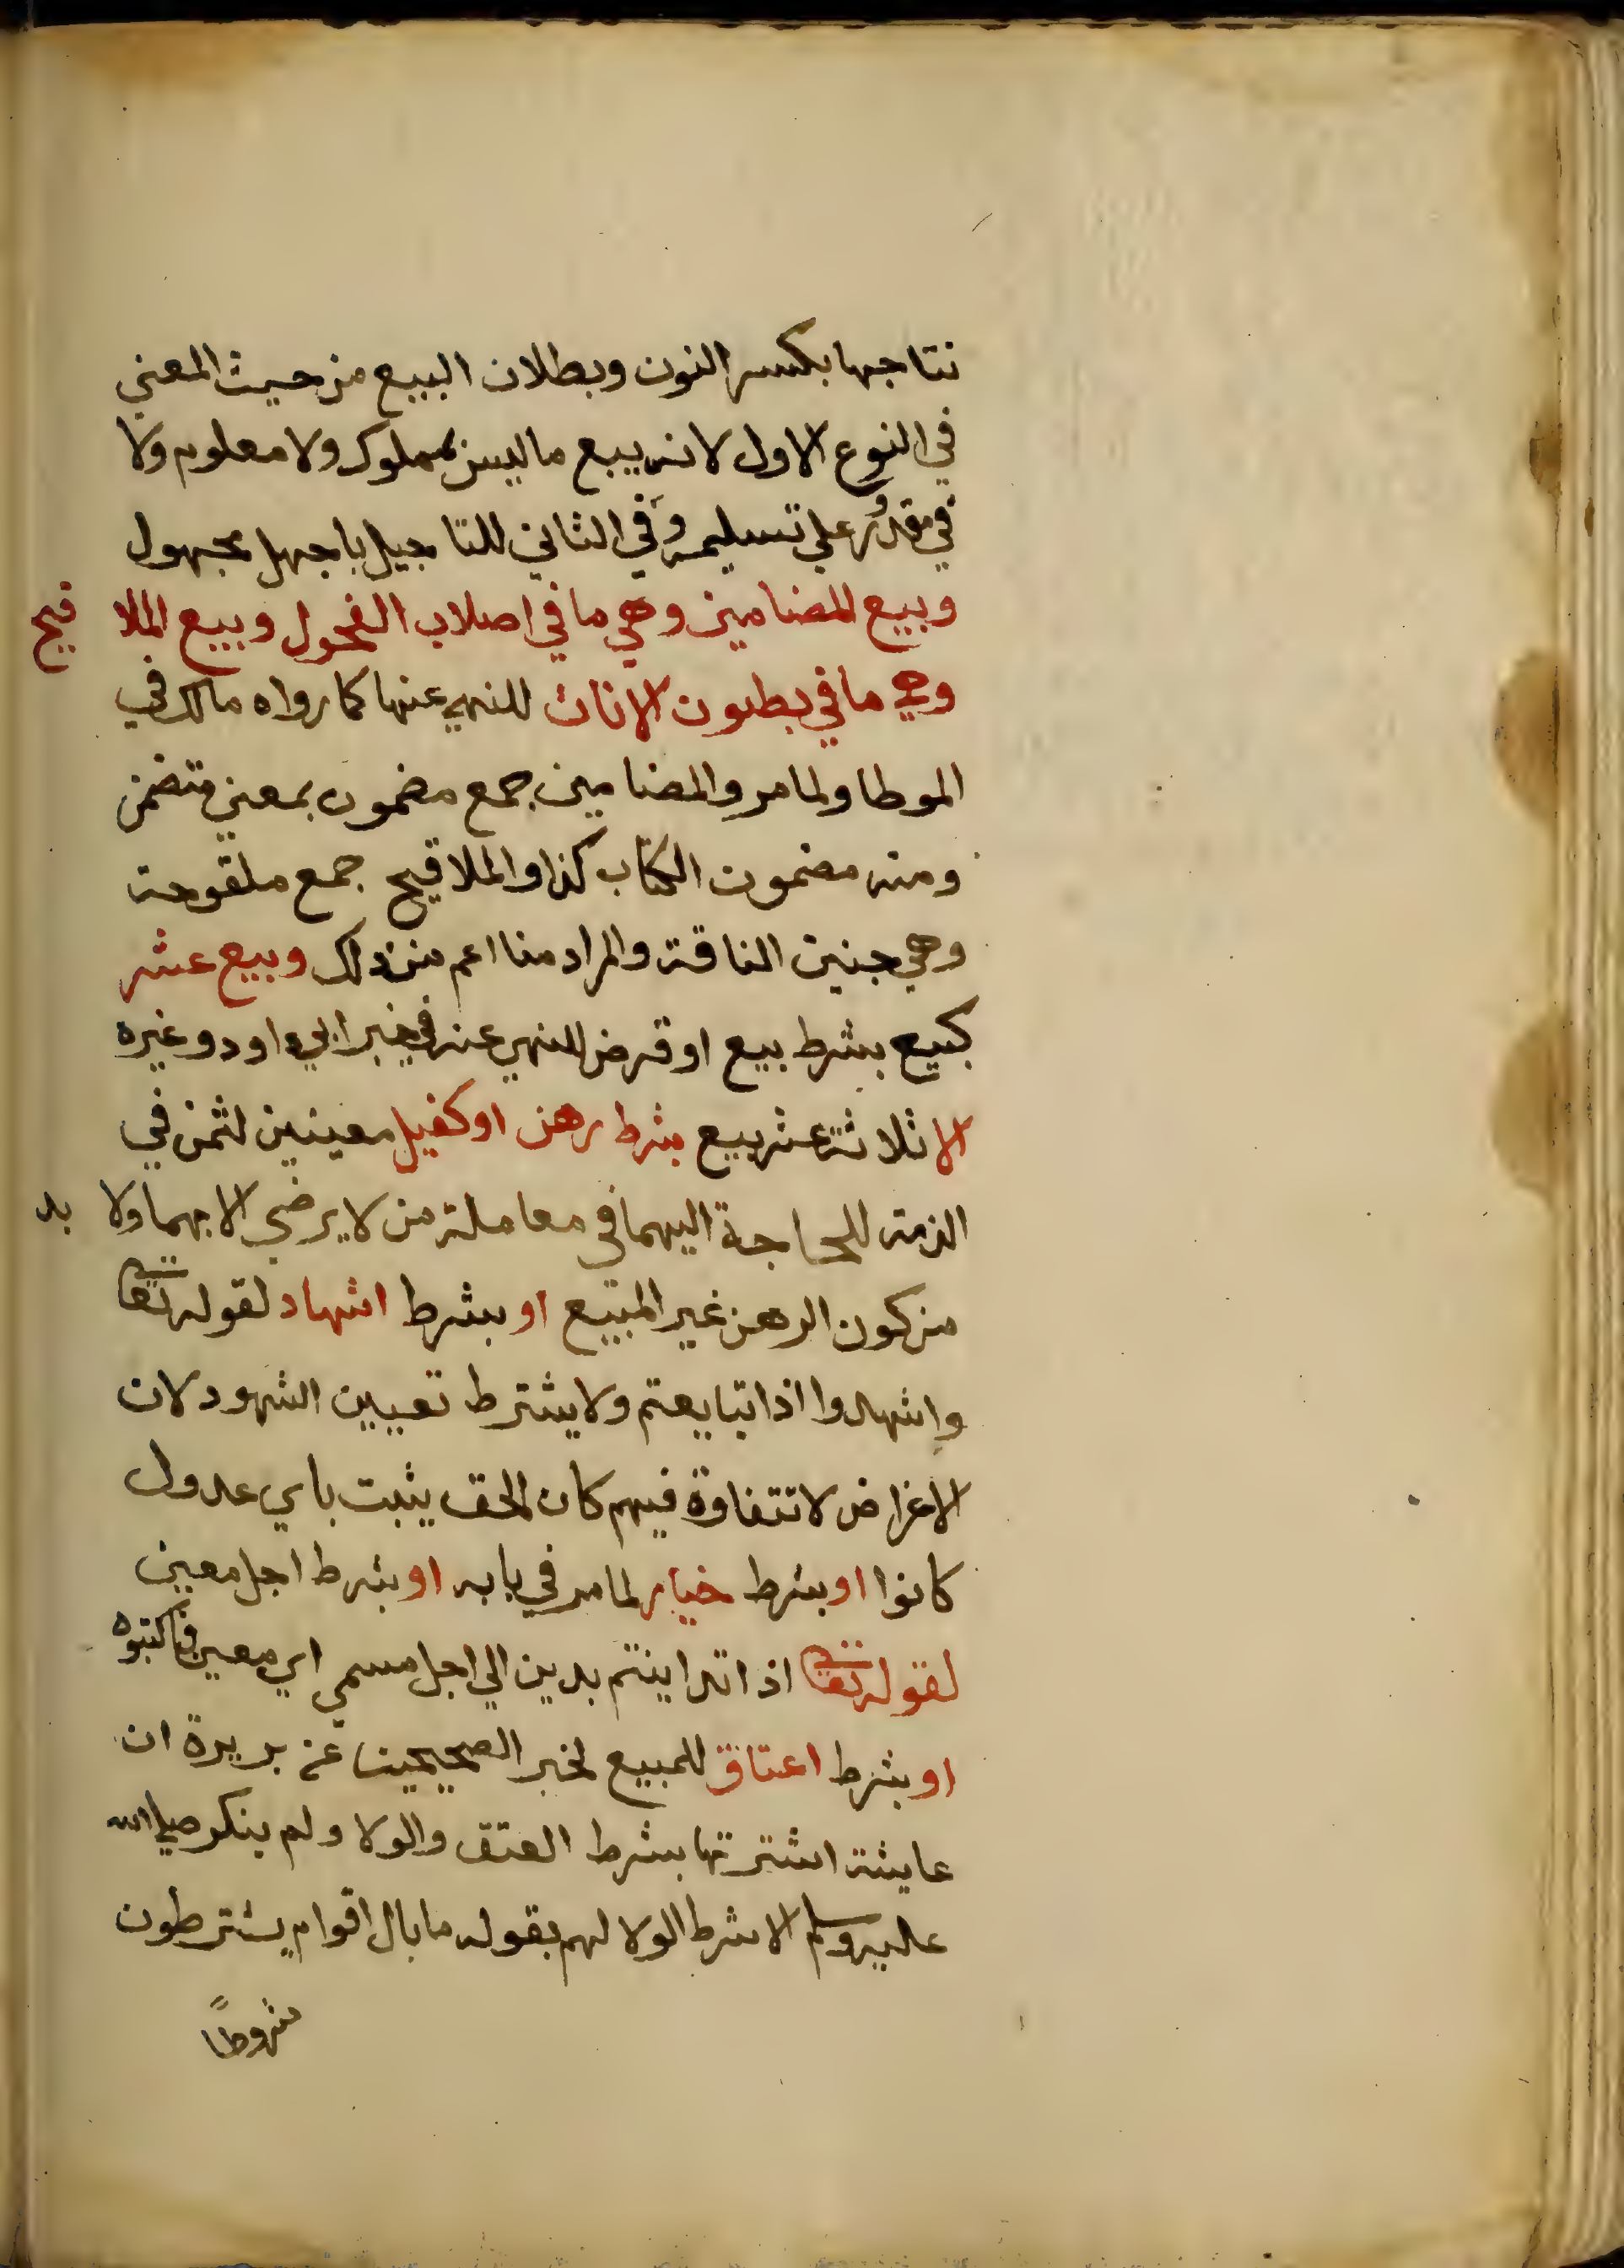 نتاجها بكسر النون وبطلان البيع من حيث المعني
في النوع الاول لانه بيع ما ليس بمملوك ولا معلوم ولا
في مقدور علي تسليمه وَفي الثاني للتاجيل باجهل مجهول
وبيع المضامين وهي ما في اصلاب الفحول وبيع الملاقيح
وهي ما في بطون الاناث للنهي عنها كما رواه مالك في
الموطا ولما مر والمضامين جمع مضمون بمعني متضمن
ومنه مضمون الكتاب كذا والملاقيح جمع ملقوحة
وهي جنين الناقة والمراد منا اعم من ذلك وبيع عشر
كبيع بشرط بيع او قرض للنهي عنه في خبر ابي داود وغيره
الا ثلاثة عشر بيع بشرط رهن او كفيل معينين لثمن في
الذمة للحاجة اليهما في معاملة من لا يرضي الا بهما ولا بد
من كون الرهن غير المبيع او بشرط اشهاد لقوله تعا
واشهدوا اذا تبايعتم ولا يشترط تعيين الشهود لان
الاغراض لا تتفاوة فيهم كان الحق يثبت باي عدول
كانوا او بشرط خيار لما مر في بابه او بشرط اجل معين
لقوله تعا اذا تداينتم بدين الي اجل مسمي اي معين فاكتبوه
او بشرط اعتاق للمبيع لخبر الصحيحين عن بريرة ان
عايشة اشترتها بشرط العتق والولا ولم ينكر صلي الله
عليه وسلم الا شرط الولا لهم بقوله ما بال اقوام يشترطون
شروطاً